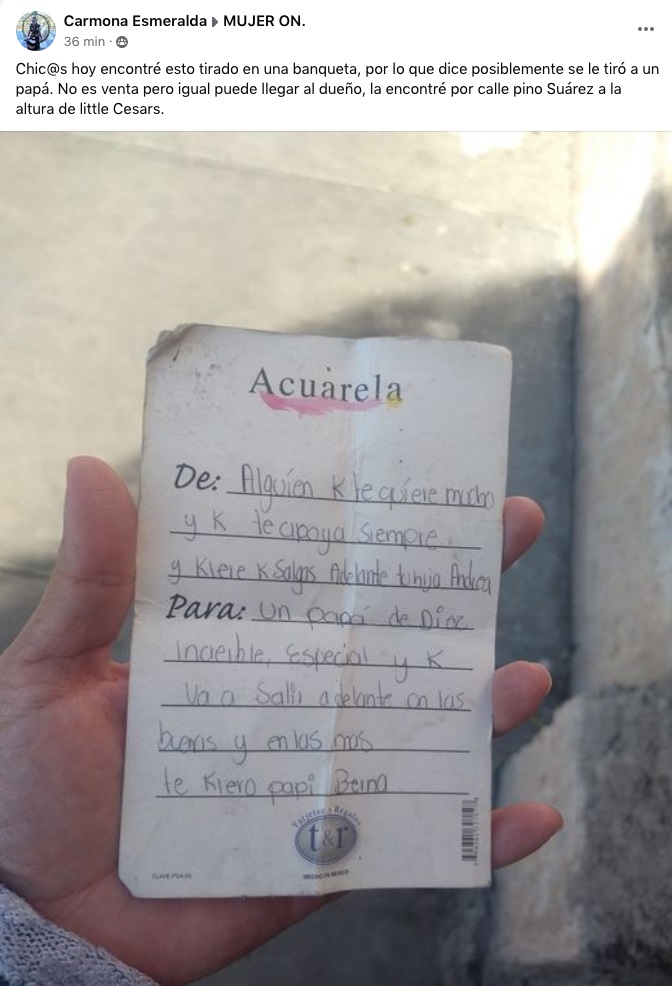 Carmona Esmeralda ▸ MUJER ON.
36 min ·
Chic@s hoy encontré esto tirado en una banqueta, por lo que dice posiblemente se le tiró a un
papá. No es venta pero igual puede llegar al dueño, la encontré por calle pino Suárez a la
altura de little Cesars.
Acuarela
De: Alguien K te quiere mucho
y K te apoya siempre
y Kiere K Salgas Adelante tu hija Andrea
Para: un papá de Diez
increible, Especial y K
Va a Salir adelante en las
buenas y en las
te Kiero papi
Tarjetas y Regalos
t&r
HECHO EN MEXICO